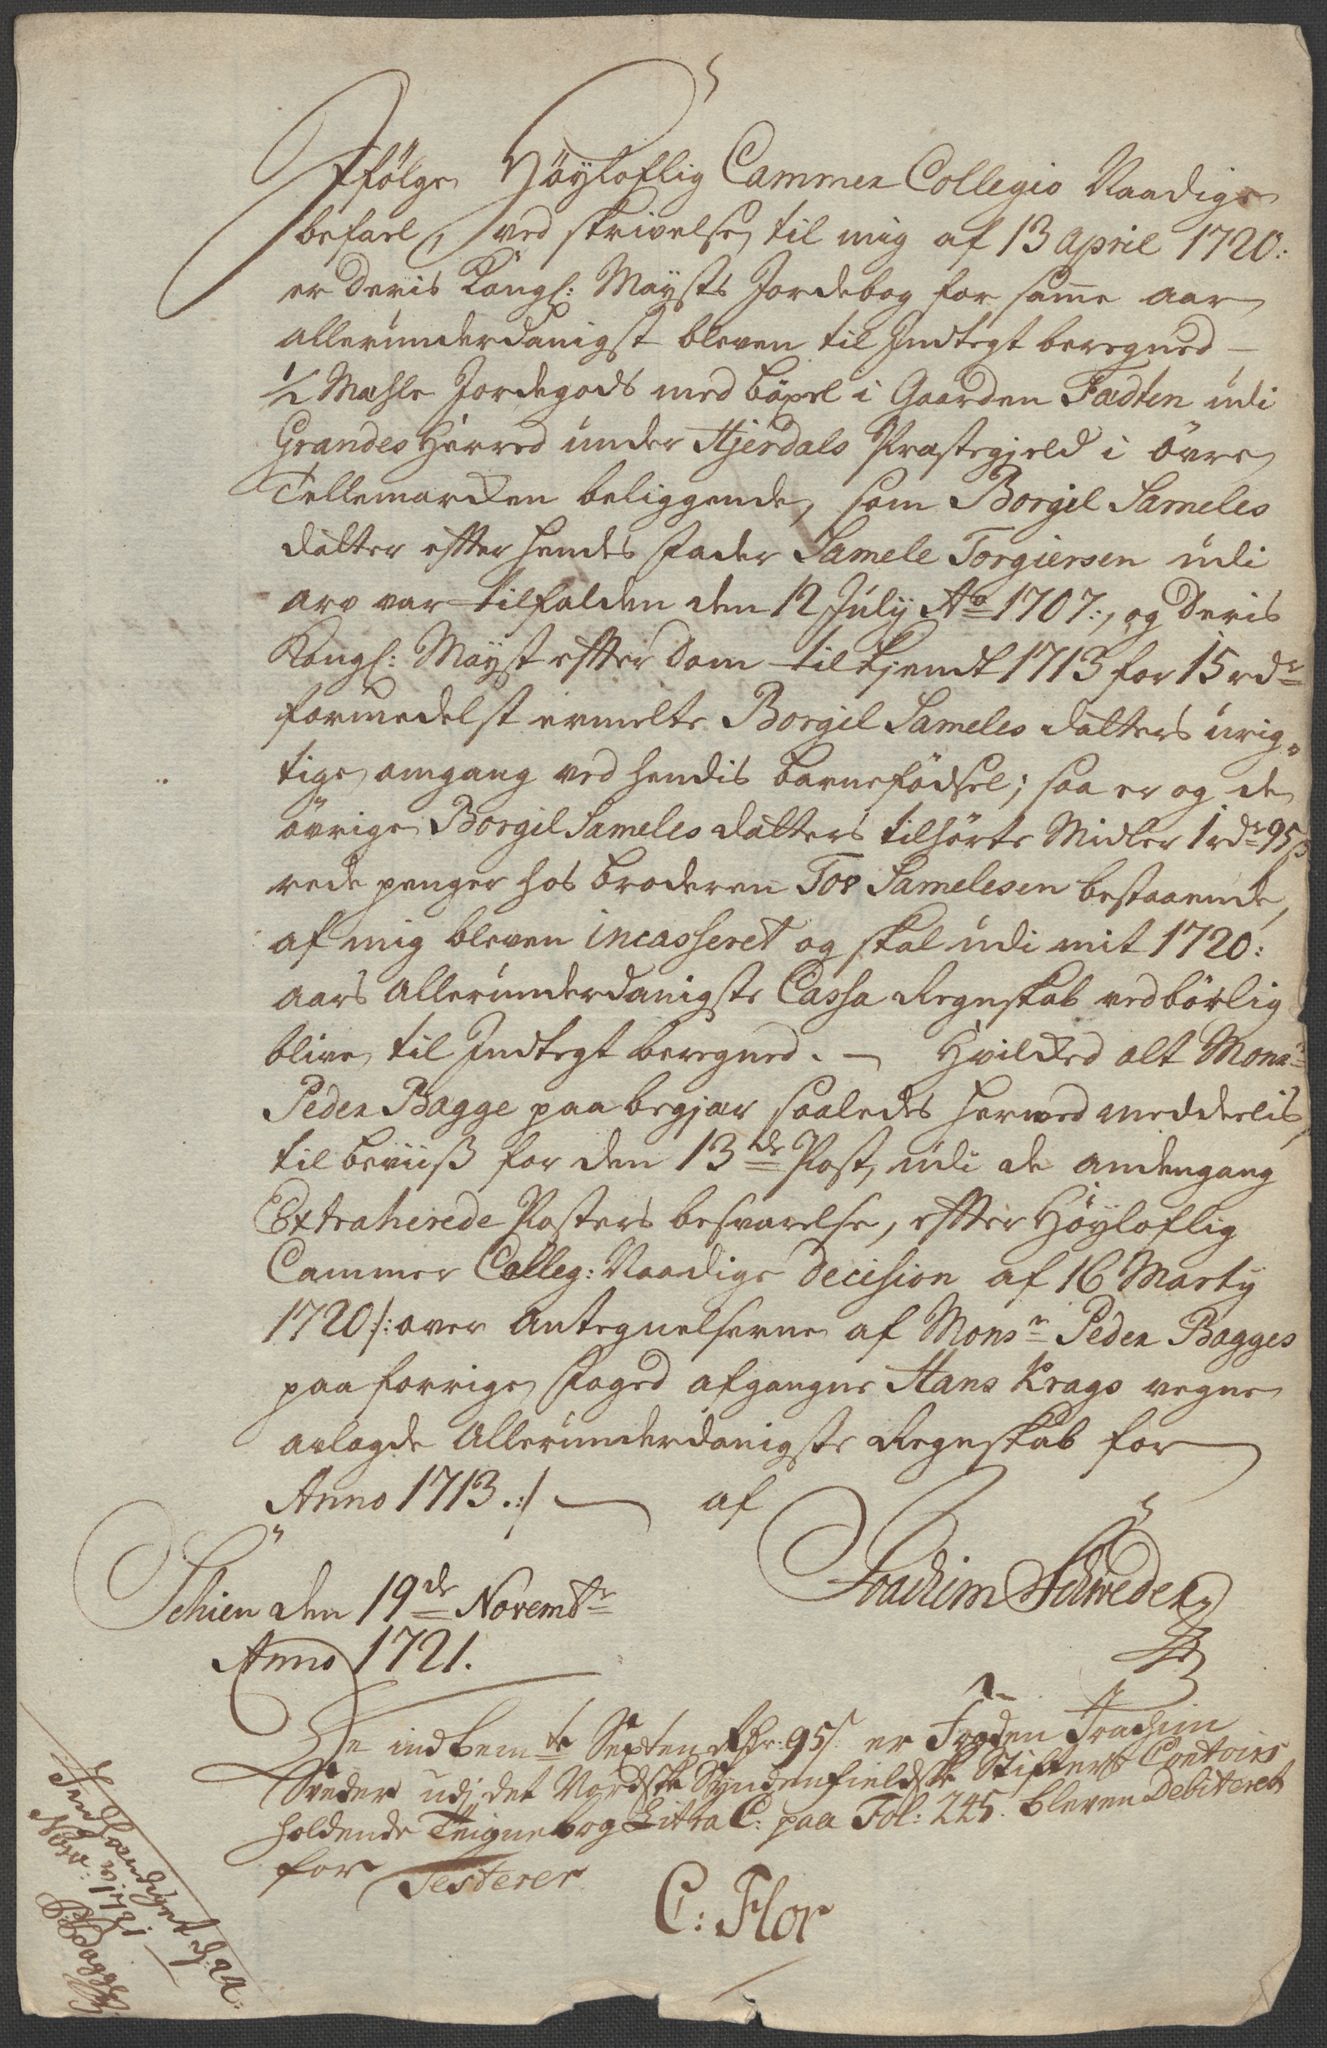 Ifølge Høyloflig Cammer Collegio Naadige
befael, ved skrivelse til mig af 13 April 1720:
er Deris Kongl: Maysts Jordebog for samme aar
allerunderdanigst bleven til Indtegt beregned –
1/2 Mæhle Jordegods med bøxel i Gaarden Fædten udi
Grandes Herred under Hjerdals Præstegjeld i Øvre
Tellemarcken beliggende, som Borgil Sameles
datter efter hendes Fader Samele Torgiersen udi
arv var tilfalden den 12 July Ao 1707:, og Deris
Kongl: Mayst efter dom tilkjendt 1713 for 15 rdr
formedelst ermelte Borgil Sameles datters urig-
tige omgang ved hendis barnefødsel; saa er og de
øvrige Borgil Sameles datters tilhørte Midler 1 rdr 95 s
rede penger hos broderen Tov Samelesen bestaaende,
af mig bleven incasseret og skal udi mit 1720:
aars Allerunderdanigste Cassa Regnskab ved børlig
blive til Indtegt beregned. – Hvilcked alt Monsr
Peder Bagge paa begjær saaledes herved meddeelis,
til beviiß for den 13de Post, udi de andengang
Extraherede Posters besvarelse, efter Høyloflig
Cammer Colleg: Naadige Decision af 16 Marty
1720 /: over Antegnelserne af Monsr Peder Bagges
paa forrige Foged afgangne Hans Krags vegne
aflagde Allerunderdanigste Regnskab for
Anno 1713 :/ — af
Schien den 19de Novembr
Joachim Schweder
Anno 1721.
De indbemte Septen Rdr: 95 s er Frøden Joachim
Sveder udj det Nordske Syndenfieldske Stifters Contoirs
holdende Teignebog Litra C: paa Fol: 245. bleven Debiteret
for Testerer
C: Flor
Indhændiget d. 24:
Novr: 1721
P: Bagge